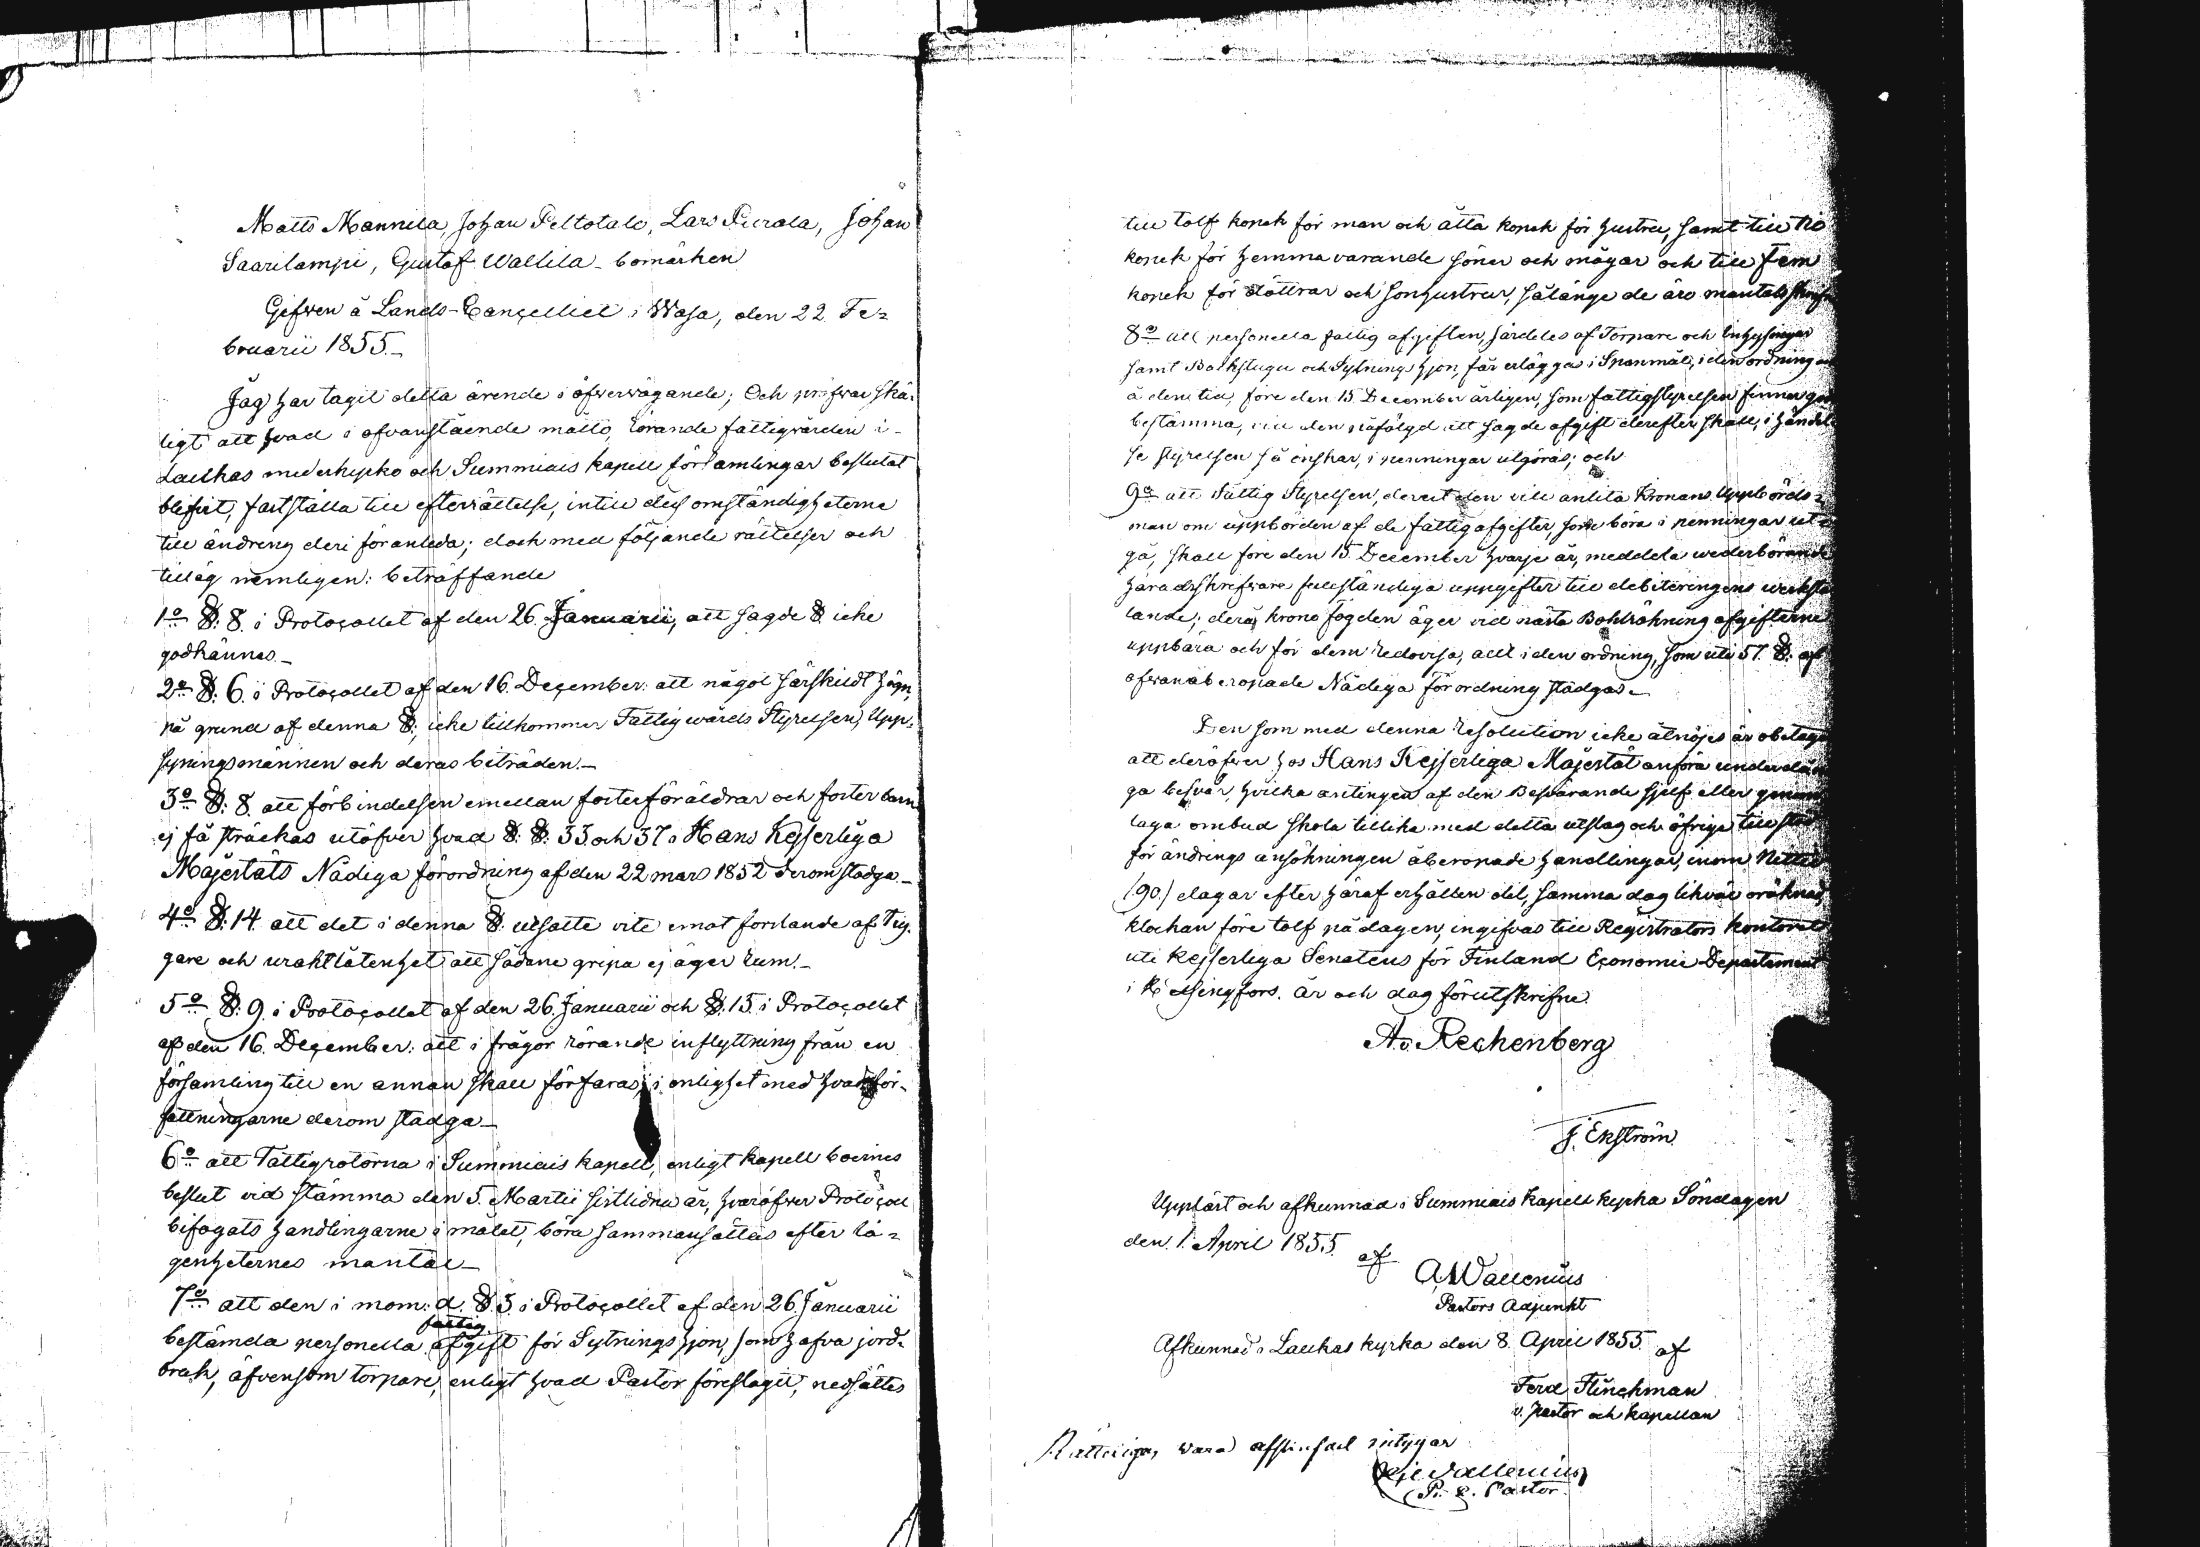 Matts Mannila, Johan Peltotalo, Lars Purola, Johan
Saarilampi, Gustaf Wallila – bomärken
Gifwen å Lands-Cancelliet i Wasa, den 22 Fe-
bruarii 1855.–
Jag har tagit detta ärende i öfverwägande; Och pröfvar skä-
ligt att hvad i ofvanstående måtto, rörande fattigvården i
Laukas moderkyrko och Summiais kapell församlingar beslutat
blifvit, fastställa till efterrättelse, intill dess omständigheterne
till ändring deri föranleda; dock med följande rättelser och
tilläg nemligen: beträffande
1:o §. 8. i Protocollet af den 26. Januarii, att sagde § icke
godkännes.–
2:o §. 6. i Protocollet af den 16 December: att något särskildt hägn,
på grund af denna §; icke tillkommer Fattigwårds Styrelsen, Upp-
syningsmännen och deras biträden.–
3:o §. 8. att förbindelsen emellan fosterföräldrar och foster barn
ej få sträckas utöfver hvad §. §. 33 och 37 i Hans Kejserliga
Majestäts Nådiga förordning af den 22 mars 1852 derom stadga.–
4:o §. 14. att det i denna §. utsatte vite emot forslande af Tig-
gare och uraktlåtenhet att sådane gripa ej äger rum.–
5:o §. 9. i Protocollet af den 26. Januarii och §. 15. i Protocollet
af den 16. December: att i frågor rörande inflyttning från en
församling till en annan skall förfaras, i enlighet med hvad för-
fattningarne derom stadga.–
6:o att Fattigrotorna i Summiais kapell, enligt kapell boernes
beslut vid stämma den 5. Martii sistlidne år, hvaröfver Protocoll
bifogats handlingarne i målet, böra sammansättas efter lä-
genheternes mantal.–
7:o att den i mom: d. §. 3. i Protocollet af den 26. Januarii
fattig
bestämda personella afgift för Sytnings hjon, som hafva jord-
bruk, äfvensom torpare, enligt hvad Pastor föreslagit, nedsättes
till tolf kopek för man och åtta kopek för hustru, samt till tio
kopek för hemmavarande söner och mågar och till fem
kopek för döttrar och sonhustrur, sålänge de äro mantalsskrifne
8:o att personella fattig afgiften, särdeles af Torpare och Inhysingar
samt Backstugu och Sytnings hjon, får erläggas i Spanmål, i den ordning och
å den tid, före den 15. December årligen, som fattigstyrelsen finner godt
bestämma, vid den påföljd att sagde afgift derefter skall, i händel-
se styrelsen så önskar, i penningar utgöras; och
9:o att Fattig Styrelsen, derest den vill anlita Kronans Uppbörds-
man om uppbörden af de fattigafgifter, som böra i penningar ut-
gå, skall före den 15 December hvarje år, meddela wederbörande
häradsskrifvare fullständiga uppgifter till debiteringens werkstäl-
lande; derå krono fogden äger vid nästa Bohlräkning afgifterne
uppbära och för dem redovisa, allt i den ordning, som uti 57. §. af
ofvanåberopade Nådiga förordning stadgas.–
Den som med denna resolution icke åtnöjes är obetaget
att deröfver hos Hans Kejserliga Majestät anföra underdåni-
ga besvär, hvilka antingen af den Besvärande sjelf eller genom
laga ombud skola tillika med detta utslag och öfriga till stöd
för ändrings ansökningen åberopade handlingar, inom Nettio
(90.) dagar efter häraf erhållen del, samma dag likväl oräknad
klockan före tolf på dagen, ingifvas till Registrators kontoret
uti Kejserliga Senatens för Finland Economie Departement
i Helsingfors. År och dag förutskrifne.
A. v. Rechenberg
F. Ekström
Uppläst och afkunnad i Summiais kapell kyrka Söndagen
den 1. April 1855. af
A Wallenius
Pastors Adjunkt
Afkunnad i Laukas kyrka den 8. April 1855. af
Ferd. Flinchman
v. pastor och kapellan
vara afskrifvad intygar
Wallenius
Pastor.